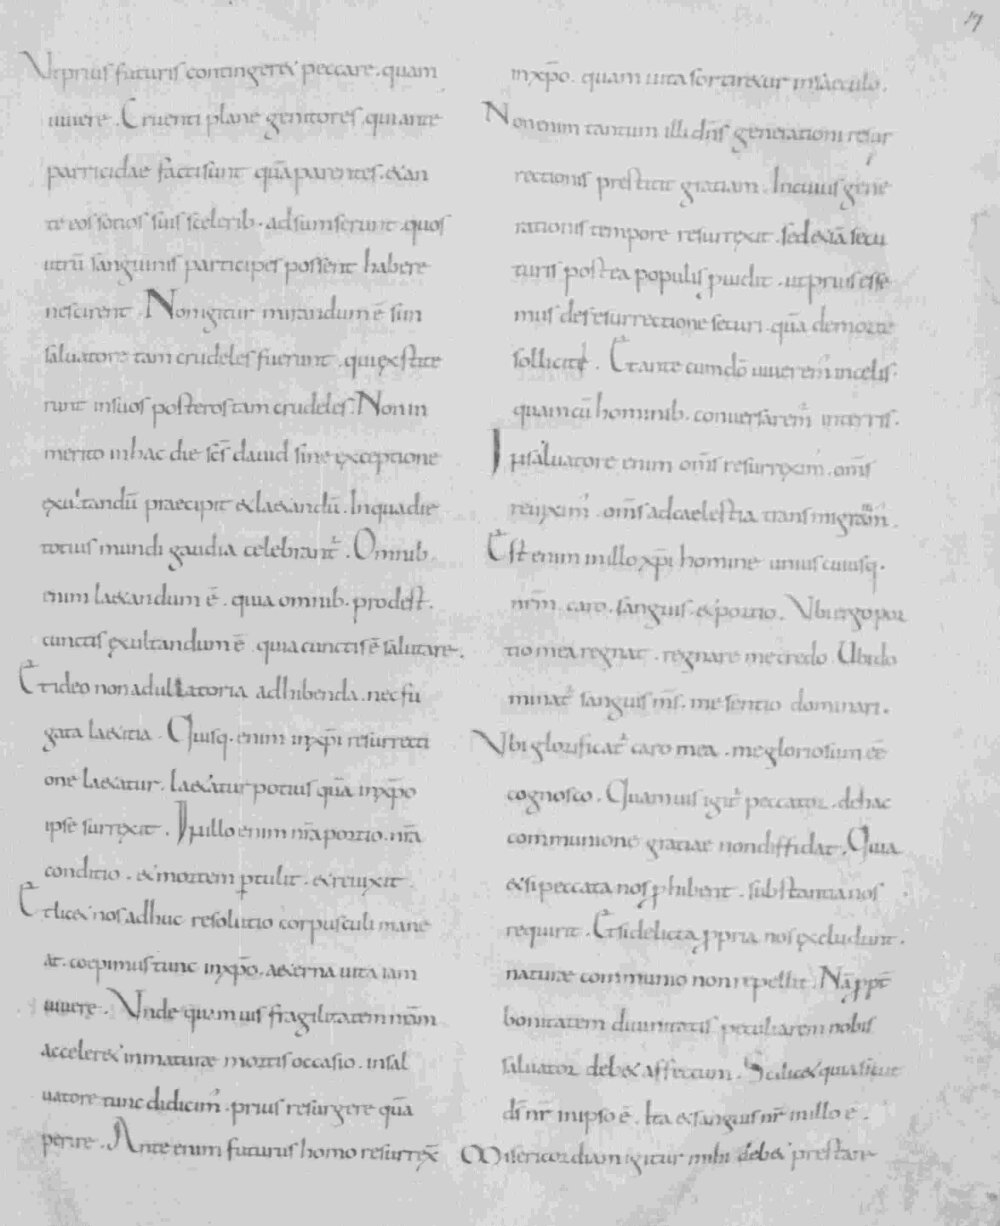 17
Ut prius futuris contingeret peccare . quam
uiuere . Cruenti plane genitores . qui ante
parricidae facti sunt quā parentes . et an
te eos sorios suis sceleribꝰ . adsumserunt . quos
utrū sanguinis participes possent habere
nescirent . Non igitur mirandum ē si in
saluatore tam crudeles fuerunt . qui exstite
runt in suos posteros tam crudeles . Non in
merito in hac die scs̄ dauid sine exceptione
exultandū praecipit et laetandū . In qua die
totius mundi gaudia celebrant᷑ . Omnib .
enim laetandum ē . quia omnib . prodest .
cunctis exultandum ē . quia cunctis ē salutare .
Et ideo non adullatoria adhibenda . nec fu
gata laetitia . Quisq . enim in xp̄i resurrecti
one laetatur . laetatur potius quā in xp̄o
ipse surrexit . In illo enim nr̄a portio . nr̄a
conditio . et mortem ꝑtulit . et reuixit .
Et licet nos adhuc resolutio corpusculi mane
at . coepimus tunc in xp̄o . aeterna uita iam
uiuere . Unde quamuis fragilitatem nr̄am
acceleret inmaturae mortis occasio . in sal
uatore tunc didicim᷑ . prius resurgere quā
perire . Ante enim futurus homo resurrex̄
in xp̄o . quam uita sortiretur in saeculo .
Non enim tantum illi dn̄s generationi resur
rectionis prestitit gratiam . In cuius gene
rationis tempore resurrexit . sed etiā secu
turis postea populis puidit . ut prius esse
mus de resurrectione securi . quā de morte
solliciti . Et ante cum dō uiuerem᷑ in celis .
quam cū hominib . conuersarem᷑ in terris .
In saluatore enim om̄s resurrexim᷑ . om̄s
reuixim᷑ . om̄s ad caelestia transmigram᷑ .
Est enim in illo xp̄i homine unius cuiusq .
nr̄m . caro . sanguis . et portio . Ubi ergo por
tio mea regnat . regnare me credo . Ubi do
minat᷑ sanguis ms̄ . me sentio dominari .
Ubi glorificat᷑ caro mea . me gloriosum eē
cognosco . Quamuis igit᷑ peccator . de hac
communione gratiae non diffidat . Quia
et si peccata nos ꝓhibent . substantia nos
requirit . Et si delicta ꝓpria nos excludunt .
naturae communio non repellit . Nā ꝓpt̄
bonitatem diuinitatis peculiarem nobis
saluator debet affectum . Scilicet quia sicut
ds̄ nr̄ in ipso ē . Ita et sanguis nr̄ in illo ē .
Misericordiam igitur mihi debet prestan-